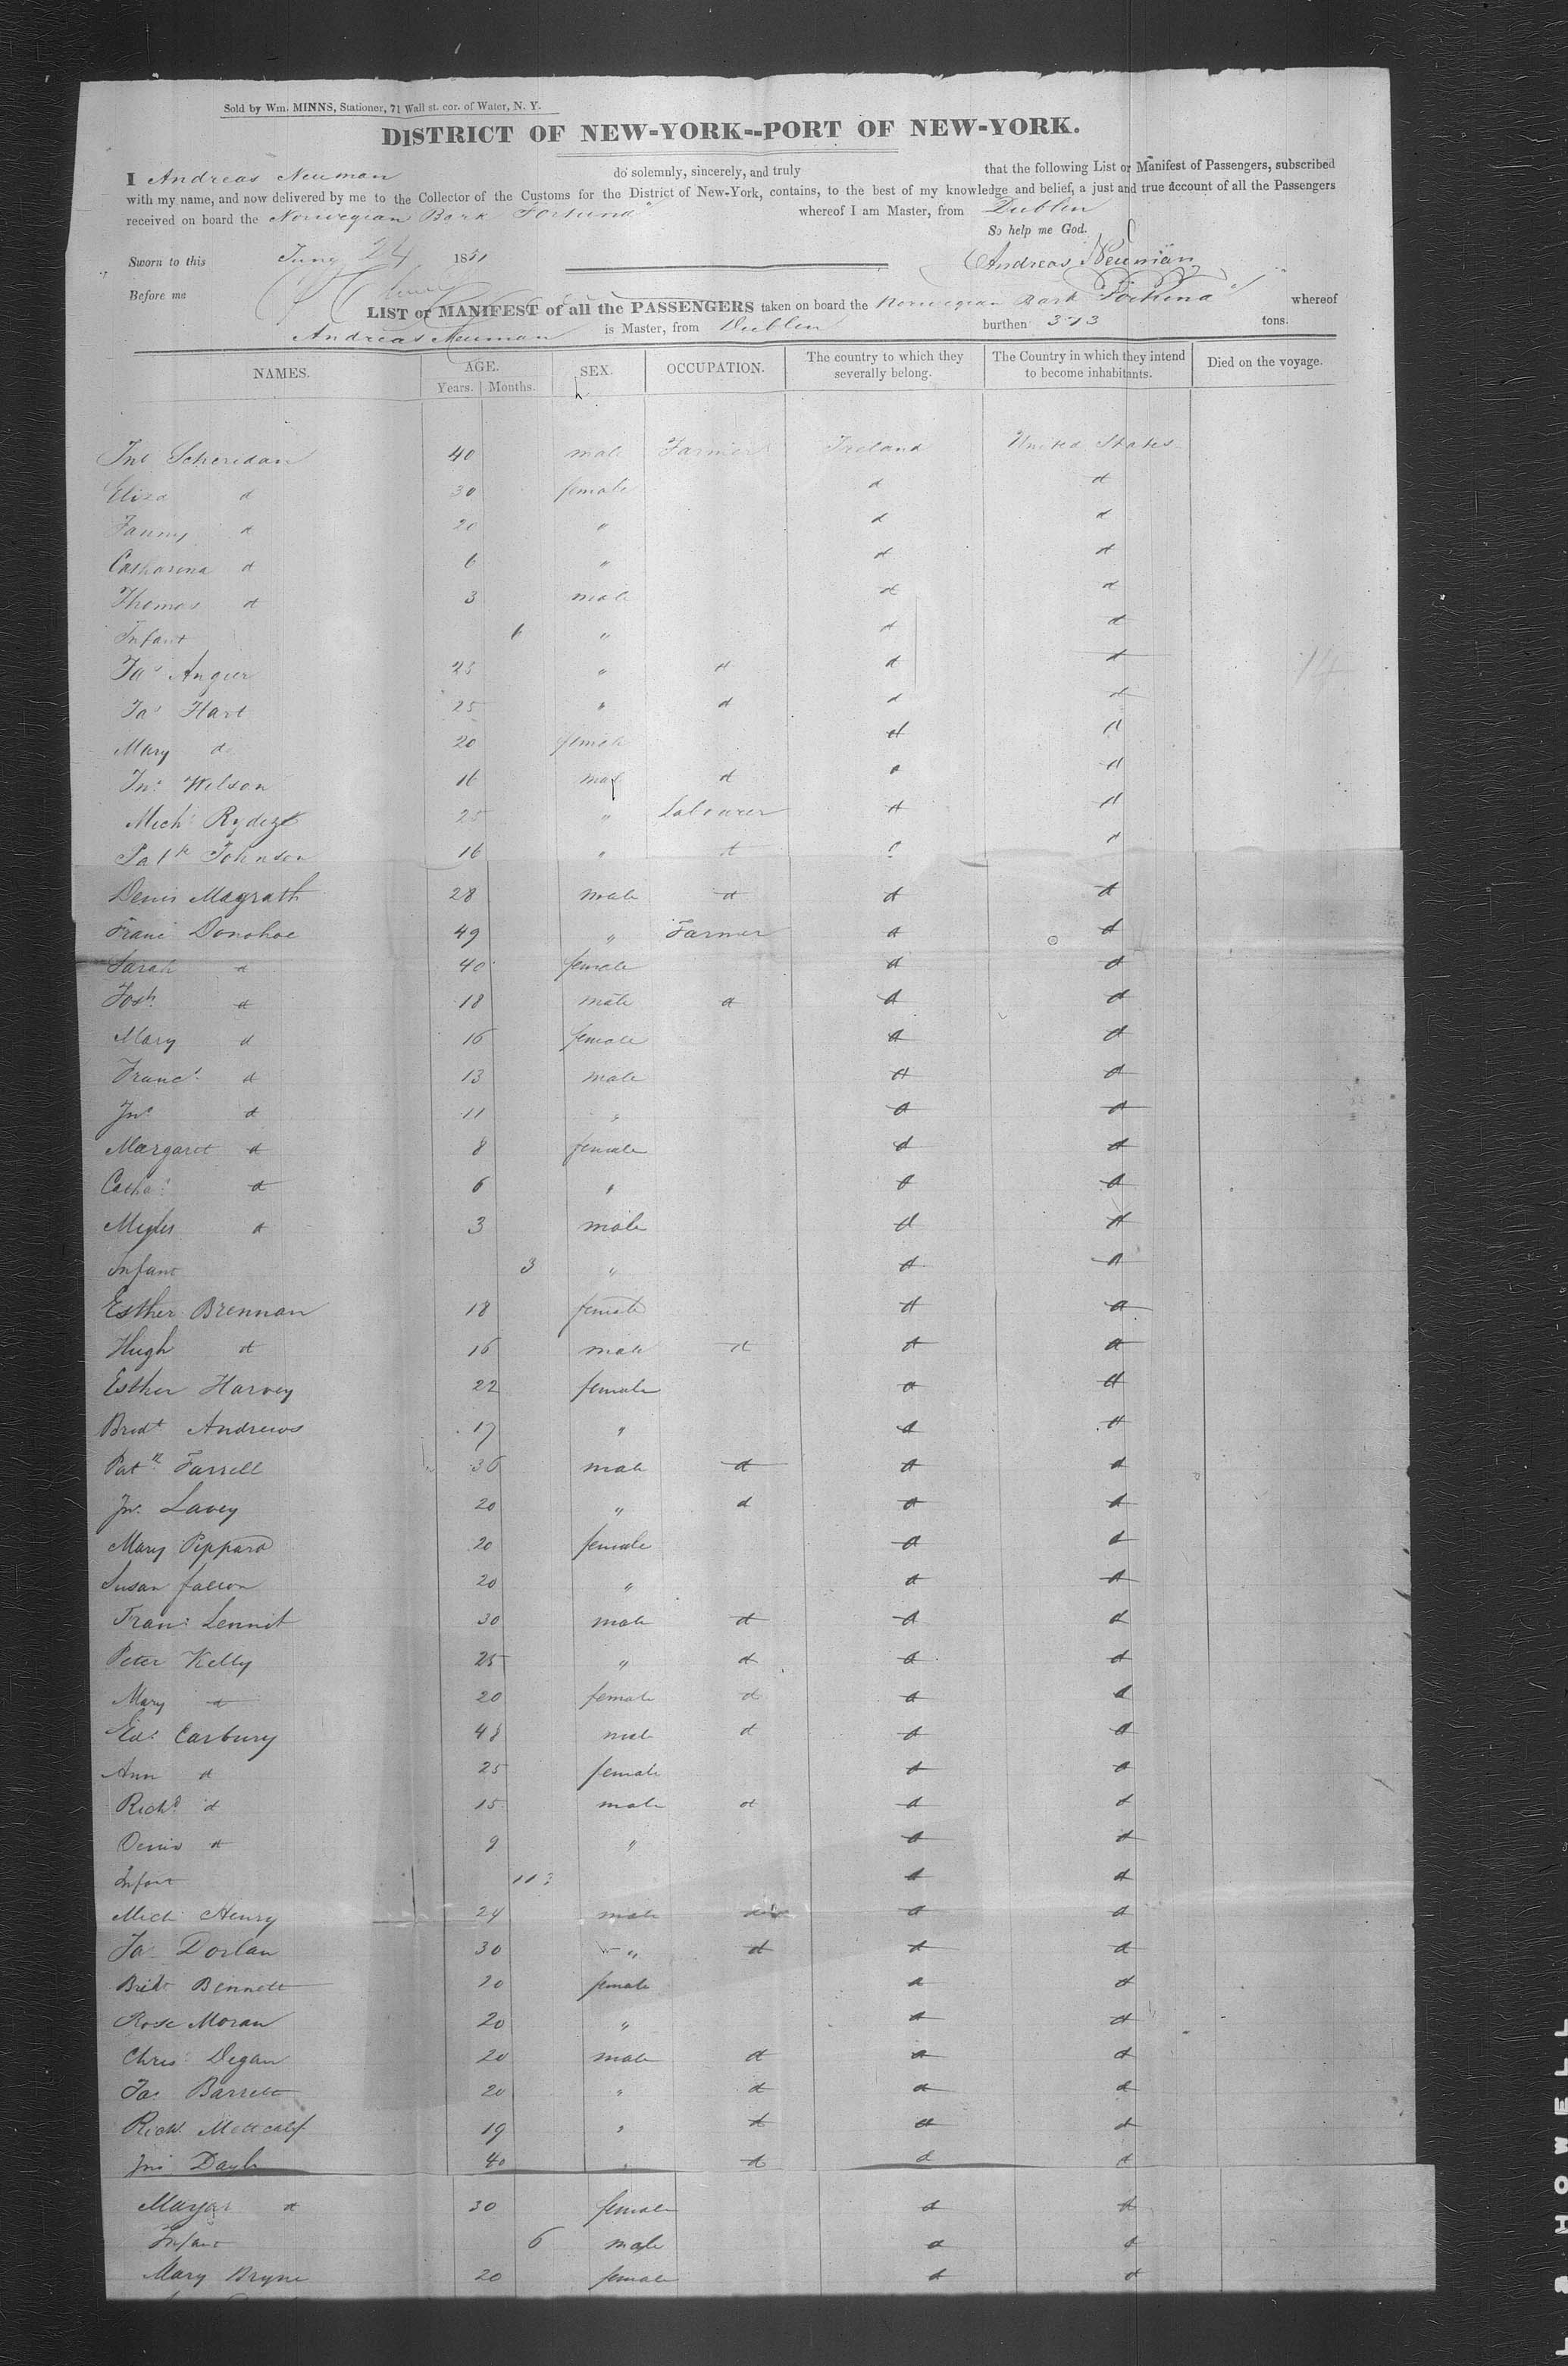 Sold by Wm. MINNS, Stationer, 71 Wall st. cor. of Water, N. Y.
DISTRICT OF NEW-YORK--PORT OF NEW-YORK.
I Andreas Neuman do solemnly, sincerely, and truly that the following List or Manifest of Passengers, subscribed
with my name, and now delivered by me to the Collector of the Customs for the District of New-York, contains, to the best of my knowledge and belief, a just and true account of all the Passengers
received on board the Norwegian Bark Fortuna whereof I am Master, from Dublin
So help me God.
Sworn to this June 24 1851 Andreas Neuman
Before me
LIST or MANIFEST of all the PASSENGERS taken on board the Norwegian Bark Fortuna whereof
Andreas Neuman is Master, from Dublin burthen 373 tons.
NAMES. AGE. Years. Months. SEX. OCCUPATION. The country to which they severally belong. The Country in which they intend to become inhabitants. Died on the voyage.
Jno Scheridan 40 male Farmer Ireland United States
Eliza d 30 female d d
Fanny d 20 " d d
Catharina d 6 " d d
Thomas d 3 male d d
Infant 6 " d d
Jas Angier 23 " d d d
Jas Hart 25 " d d d
Mary d 20 female d d
Jno Wilson 16 male d d d
Mich Rydezt 25 " Labourer d d
Patk Johnson 16 " d d
Denis Magrath 28 male d d d
Franc Donohoe 49 " Farmer d d
Sarah d 40 female d d
Josh d 18 male d d d
Mary d 16 female d d
Franc d 13 male d d
Jno d 11 " d d
Margaret d 8 female d d
Catha d 6 " d d
Myles d 3 male d d
Infant 3 " d d
Esther Brennan 18 female d d
Hugh d 16 male d d d
Esther Harvey 22 female d d
Bridt Andrews 17 " d d
Patk Farrell 36 male d d d
Jno Lavey 20 " d d d
Mary Pippard 20 female d d
Susan Fallon 20 " d d
Fran Lennit 30 male d d d
Peter Kelly 25 " d d d
Mary d 20 female d d d
Edd Carbury 48 male d d d
Ann d 25 female d d
Richd d 15 male d d d
Denis d 9 " d d
Infant 11 d d
Mich Henry 24 male d d
Jas Dorlan 30 " d d d
Bridt Bennett 20 female d d
Rose Moran 20 " d d
Chris Degan 20 male d d d
Jas Barrett 20 " d d d
Richd Mettcalf 19 " d d d
Jno Dayle 40 " d d d
Margat d 30 female d d
Infant 6 male d d
Mary Bryne 20 female d d